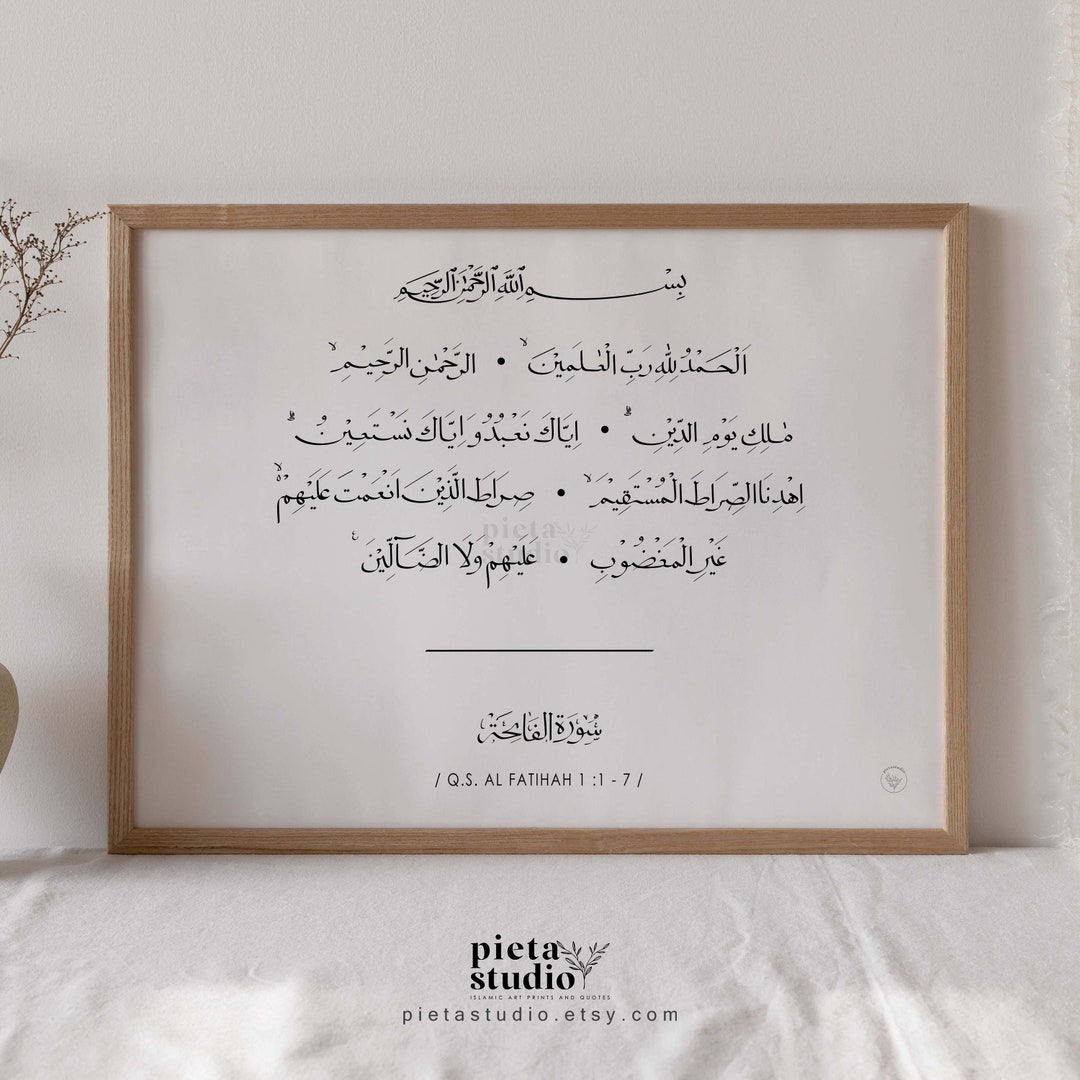 بِسْمِ ٱللَّهِ ٱلرَّحْمَٰنِ ٱلرَّحِيمِ
اَلْحَمْدُ لِلّٰهِ رَبِّ الْعٰلَمِيْنَۙ • الرَّحْمٰنِ الرَّحِيْمِۙ
مٰلِكِ يَوْمِ الدِّيْنِۗ • اِيَّاكَ نَعْبُدُ وَاِيَّاكَ نَسْتَعِيْنُۗ
اِهْدِنَا الصِّرَاطَ الْمُسْتَقِيْمَۙ • صِرَاطَ الَّذِيْنَ اَنْعَمْتَ عَلَيْهِمْۙ
غَيْرِ الْمَغْضُوْبِ • عَلَيْهِمْ وَلَا الضَّاۤلِّيْنَࣖ
pieta
studio
سُورَة الفَاتِحَة
/ Q.S. AL FATIHAH 1 :1 - 7 /
pietastudio
pieta
studio
ISLAMIC ART PRINTS AND QUOTES
pietastudio.etsy.com